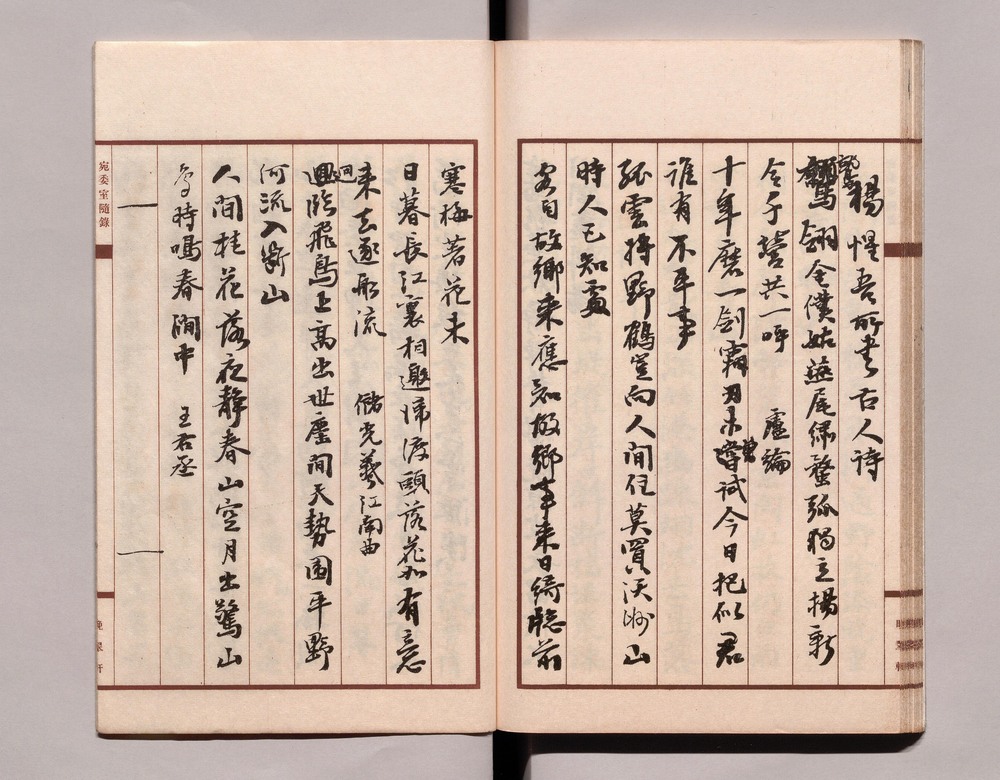 楊惺吾所書古人詩
鷲翎金僕姑燕尾繡蝥弧獨立揚新
令千營共一呼 盧綸
十年磨一劍霜刃未嘗試今日把似君
誰有不平事
孤雲將野鶴豈向人間住莫買沃洲山
時人已知處
君自故鄉来應知故鄉事来日綺牕前
寒梅著花未
日暮長江裏相邀歸渡頭落花如有意
来去逐船流 儲光羲江南曲
迥臨飛鳥上高出世塵間天勢圍平野
河流入斷山
人間桂花落夜靜春山空月出驚山
鳥時鳴春澗中 王右丞
宛委室隨錄